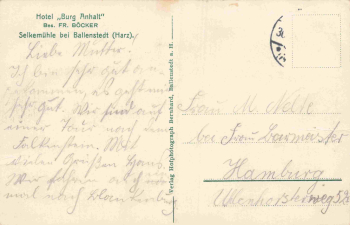 Hotel „Burg Anhalt"
Bes. FR. BÖCKER
Selkemühle bei Ballenstedt (Harz).
Liebe Mutter!
Ich bin sehr gut an-
gekommen, es geht mir
sehr gut. Wir sind auf
einer Tour nach dem
Falkenstein. Mit
vielen Grüßen Hans.
Wir
mal nach Blankenburg
Verlag Hofphotograph Bernhard, Ballenstedt a. H.
Frau M. Nolte
bei Frau Barmester
Hamburg
Uhlenhorsterweg 52